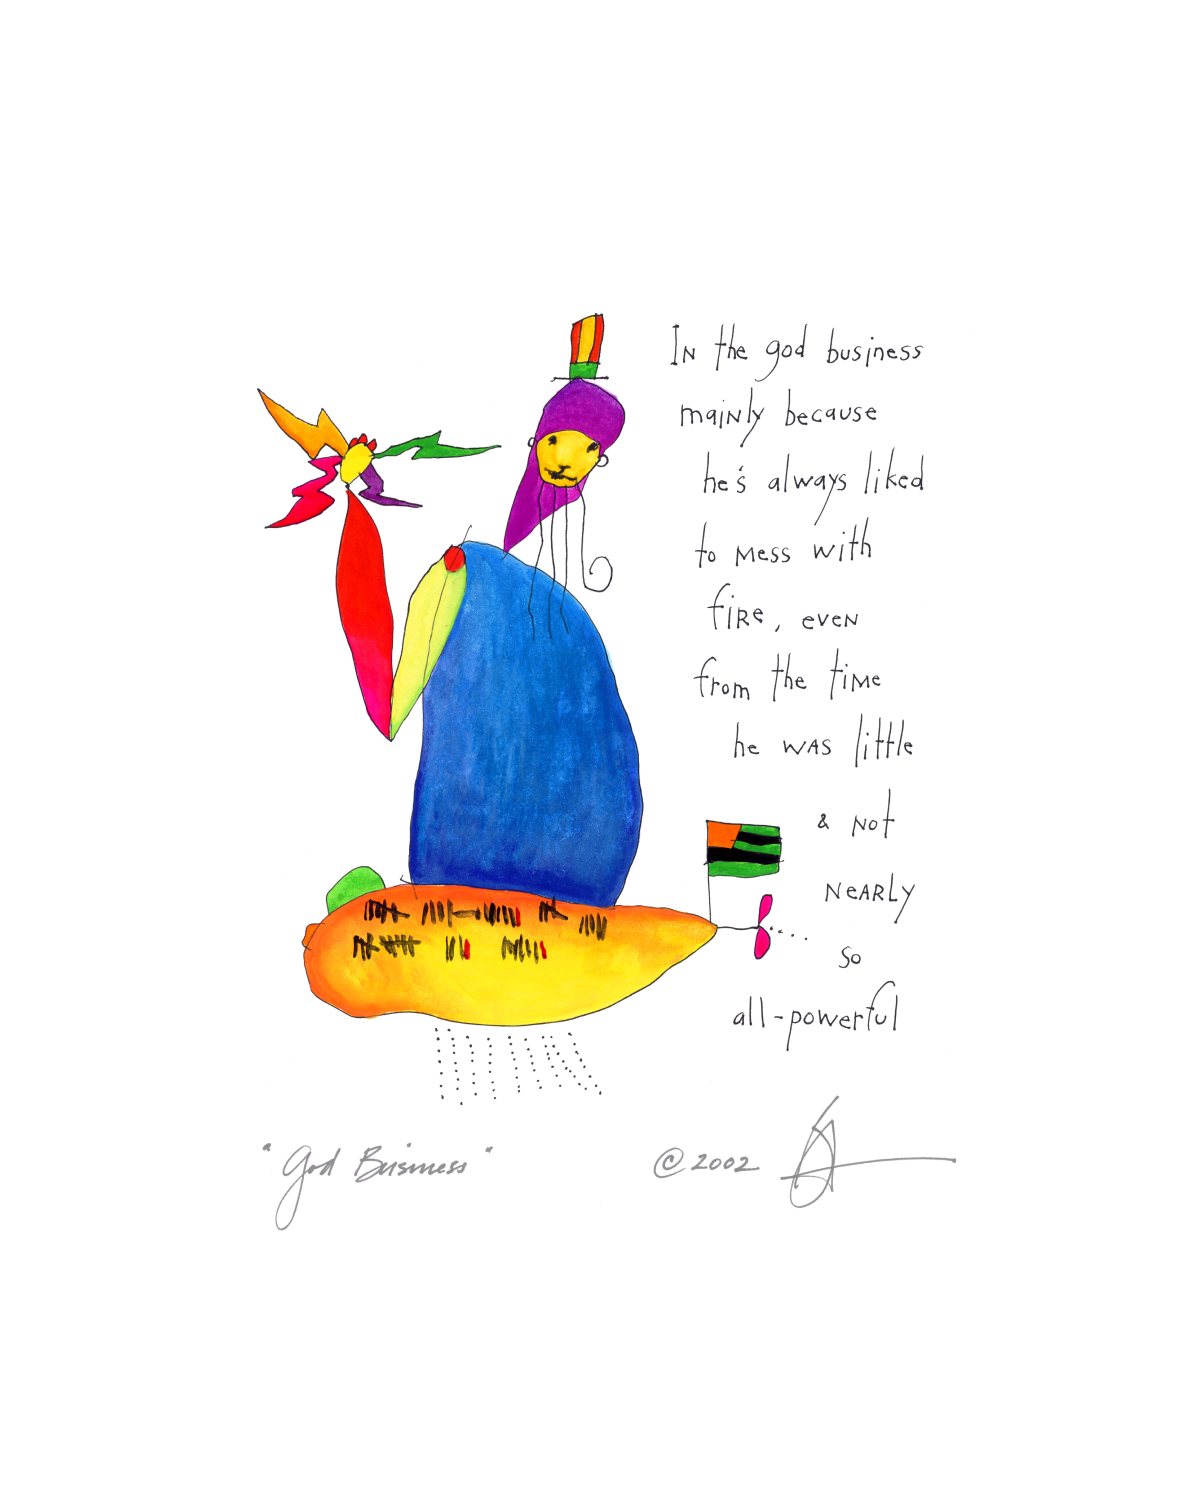 In the god business
mainly because
he's always liked
to mess with
fire, even
from the time
he was little
& not
nearly
so
all-powerful
"God Business" © 2002